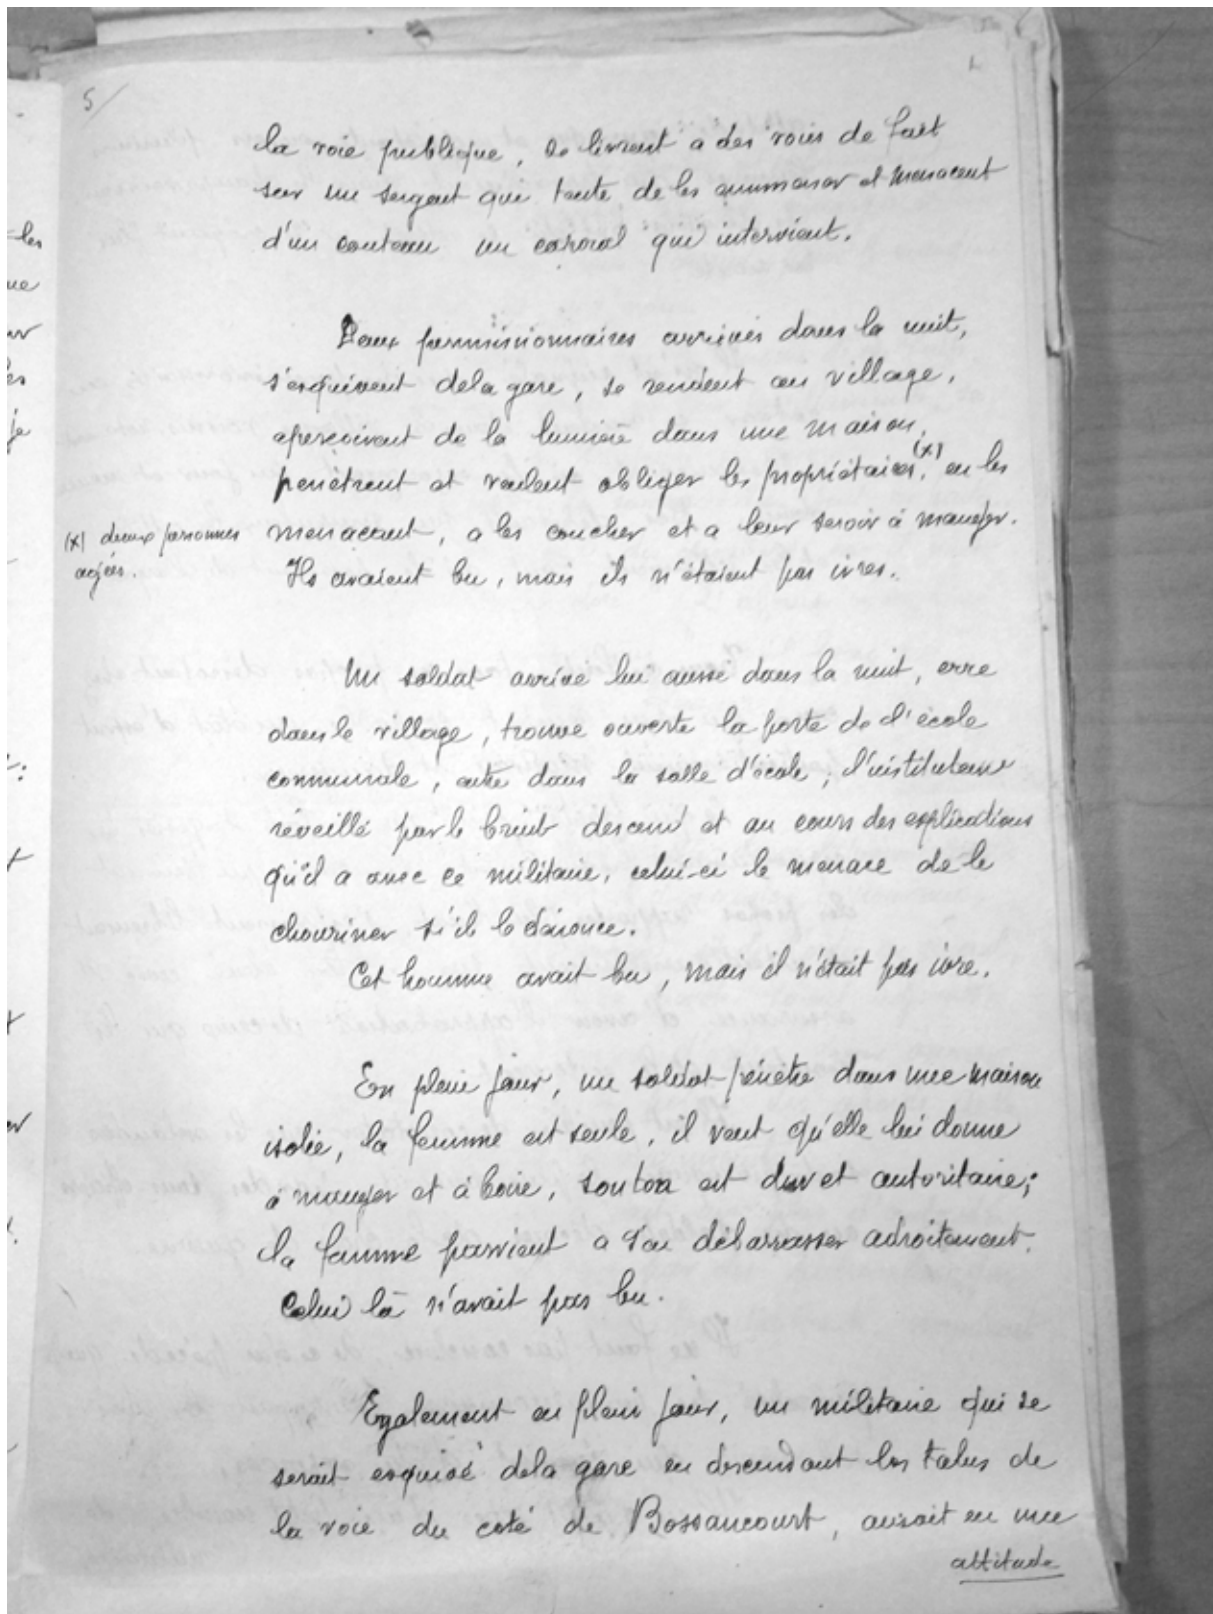 5/
la voie publique, se livrent a des voies de fait
sur un sergent qui tente de les emmener et menacent
d'un couteau un caporal qui intervient.
Deux permissionnaires arrivés dans la nuit,
s'esquivent dela gare, se rendent au village,
aperçoivent de la lumière dans une maison,
pénètrent et veulent obliger les propriétaires (x), en les
menacant, a les coucher et a leur servir à manger.
(x) deux personnes
agées.
Ils avaient bu, mais ils n'étaient pas ivres.
Un soldat arrivé lui aussi dans la nuit, erre
dans le village, trouve ouverte la porte de l'école
communale, entre dans la salle d'école, l'instituteur
réveillé par le bruit descend et au cours des explications
qu'il a avec ce militaire, celui-ci le menace de le
chouriner s'il le dénonce.
Cet homme avait bu, mais il n'était pas ivre.
En plein jour, un soldat pénètre dans une maison
isolée, la femme est seule, il veut qu'elle lui donne
à manger et à boire, son ton est dur et autoritaire;
la femme parvient a s'en débarrasser adroitement.
Celui là n'avait pas bu.
Egalement en plein jour, un militaire qui se
serait esquivé dela gare en descendant les talus de
la voie du coté de Bossancourt, aurait eu une
attitude